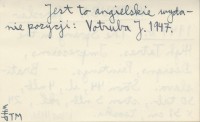 Jest to angielskie wyda-
nie pozycji: Votruba J. 1947.
TM